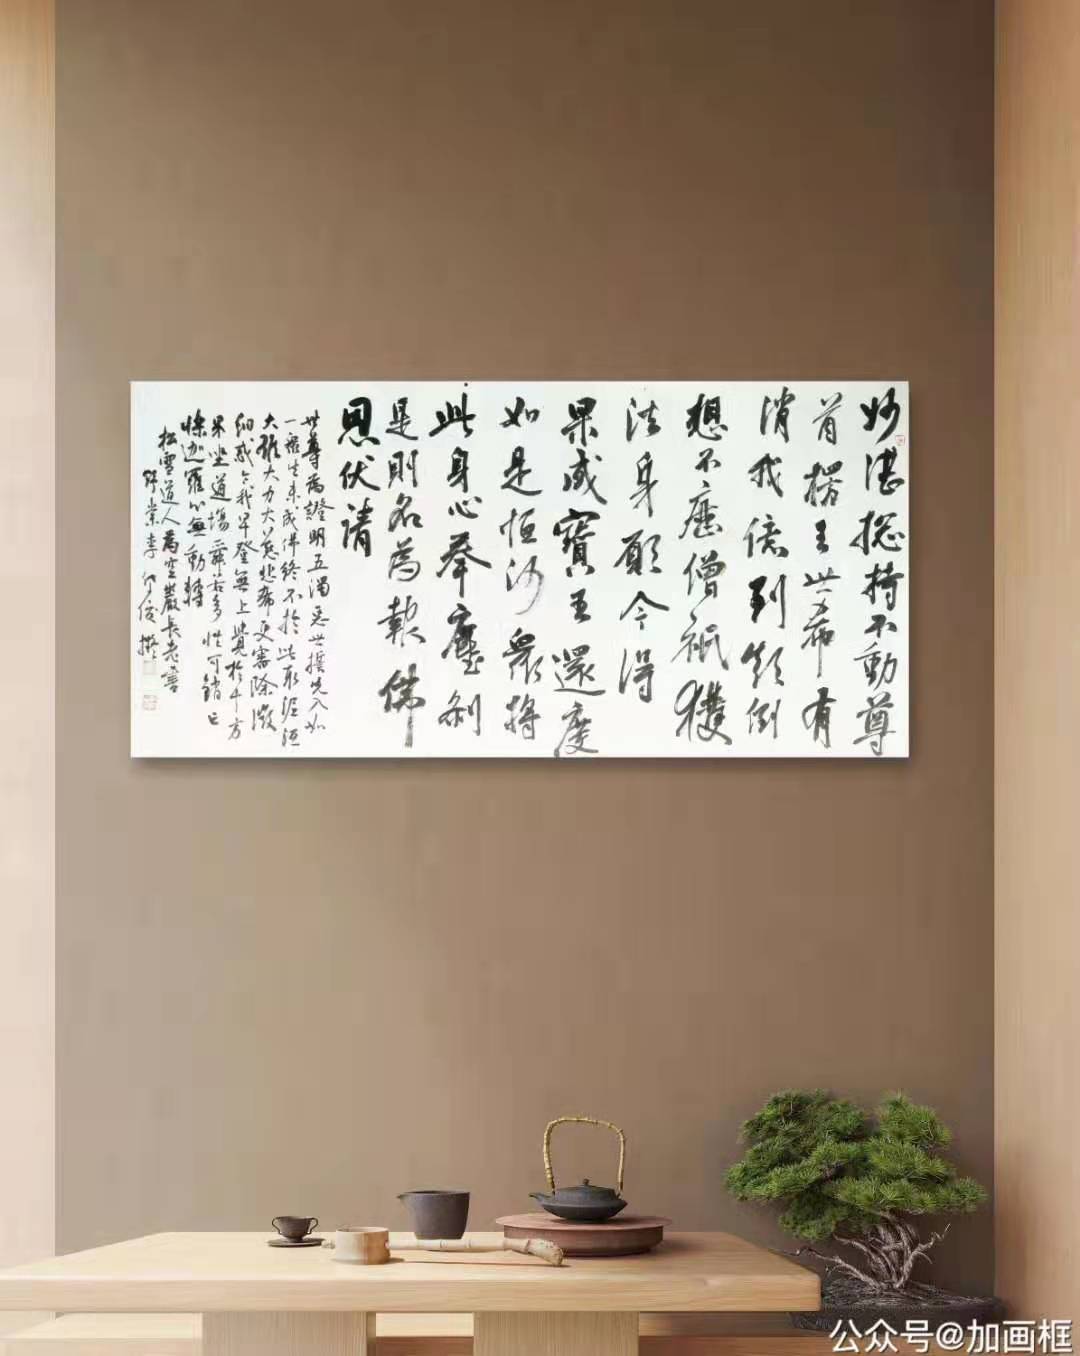 妙湛捴持不動尊
首楞王世希有
消我億刧顛倒
想不歷僧祇獲
法身願今得
果成寶王還度
如是恒沙衆將
此身心奉塵剎
是則名為報佛
恩伏請
世尊為證明五濁惡世誓先入如
一衆生未成佛終不於此取泥洹
大雄大力大慈悲希更審除微
細惑令我早登無上覺於十方
界坐道場舜若多性可銷亡
爍迦羅心無動轉
松雪道人為空巖長老書
李俊
公众号@加画框